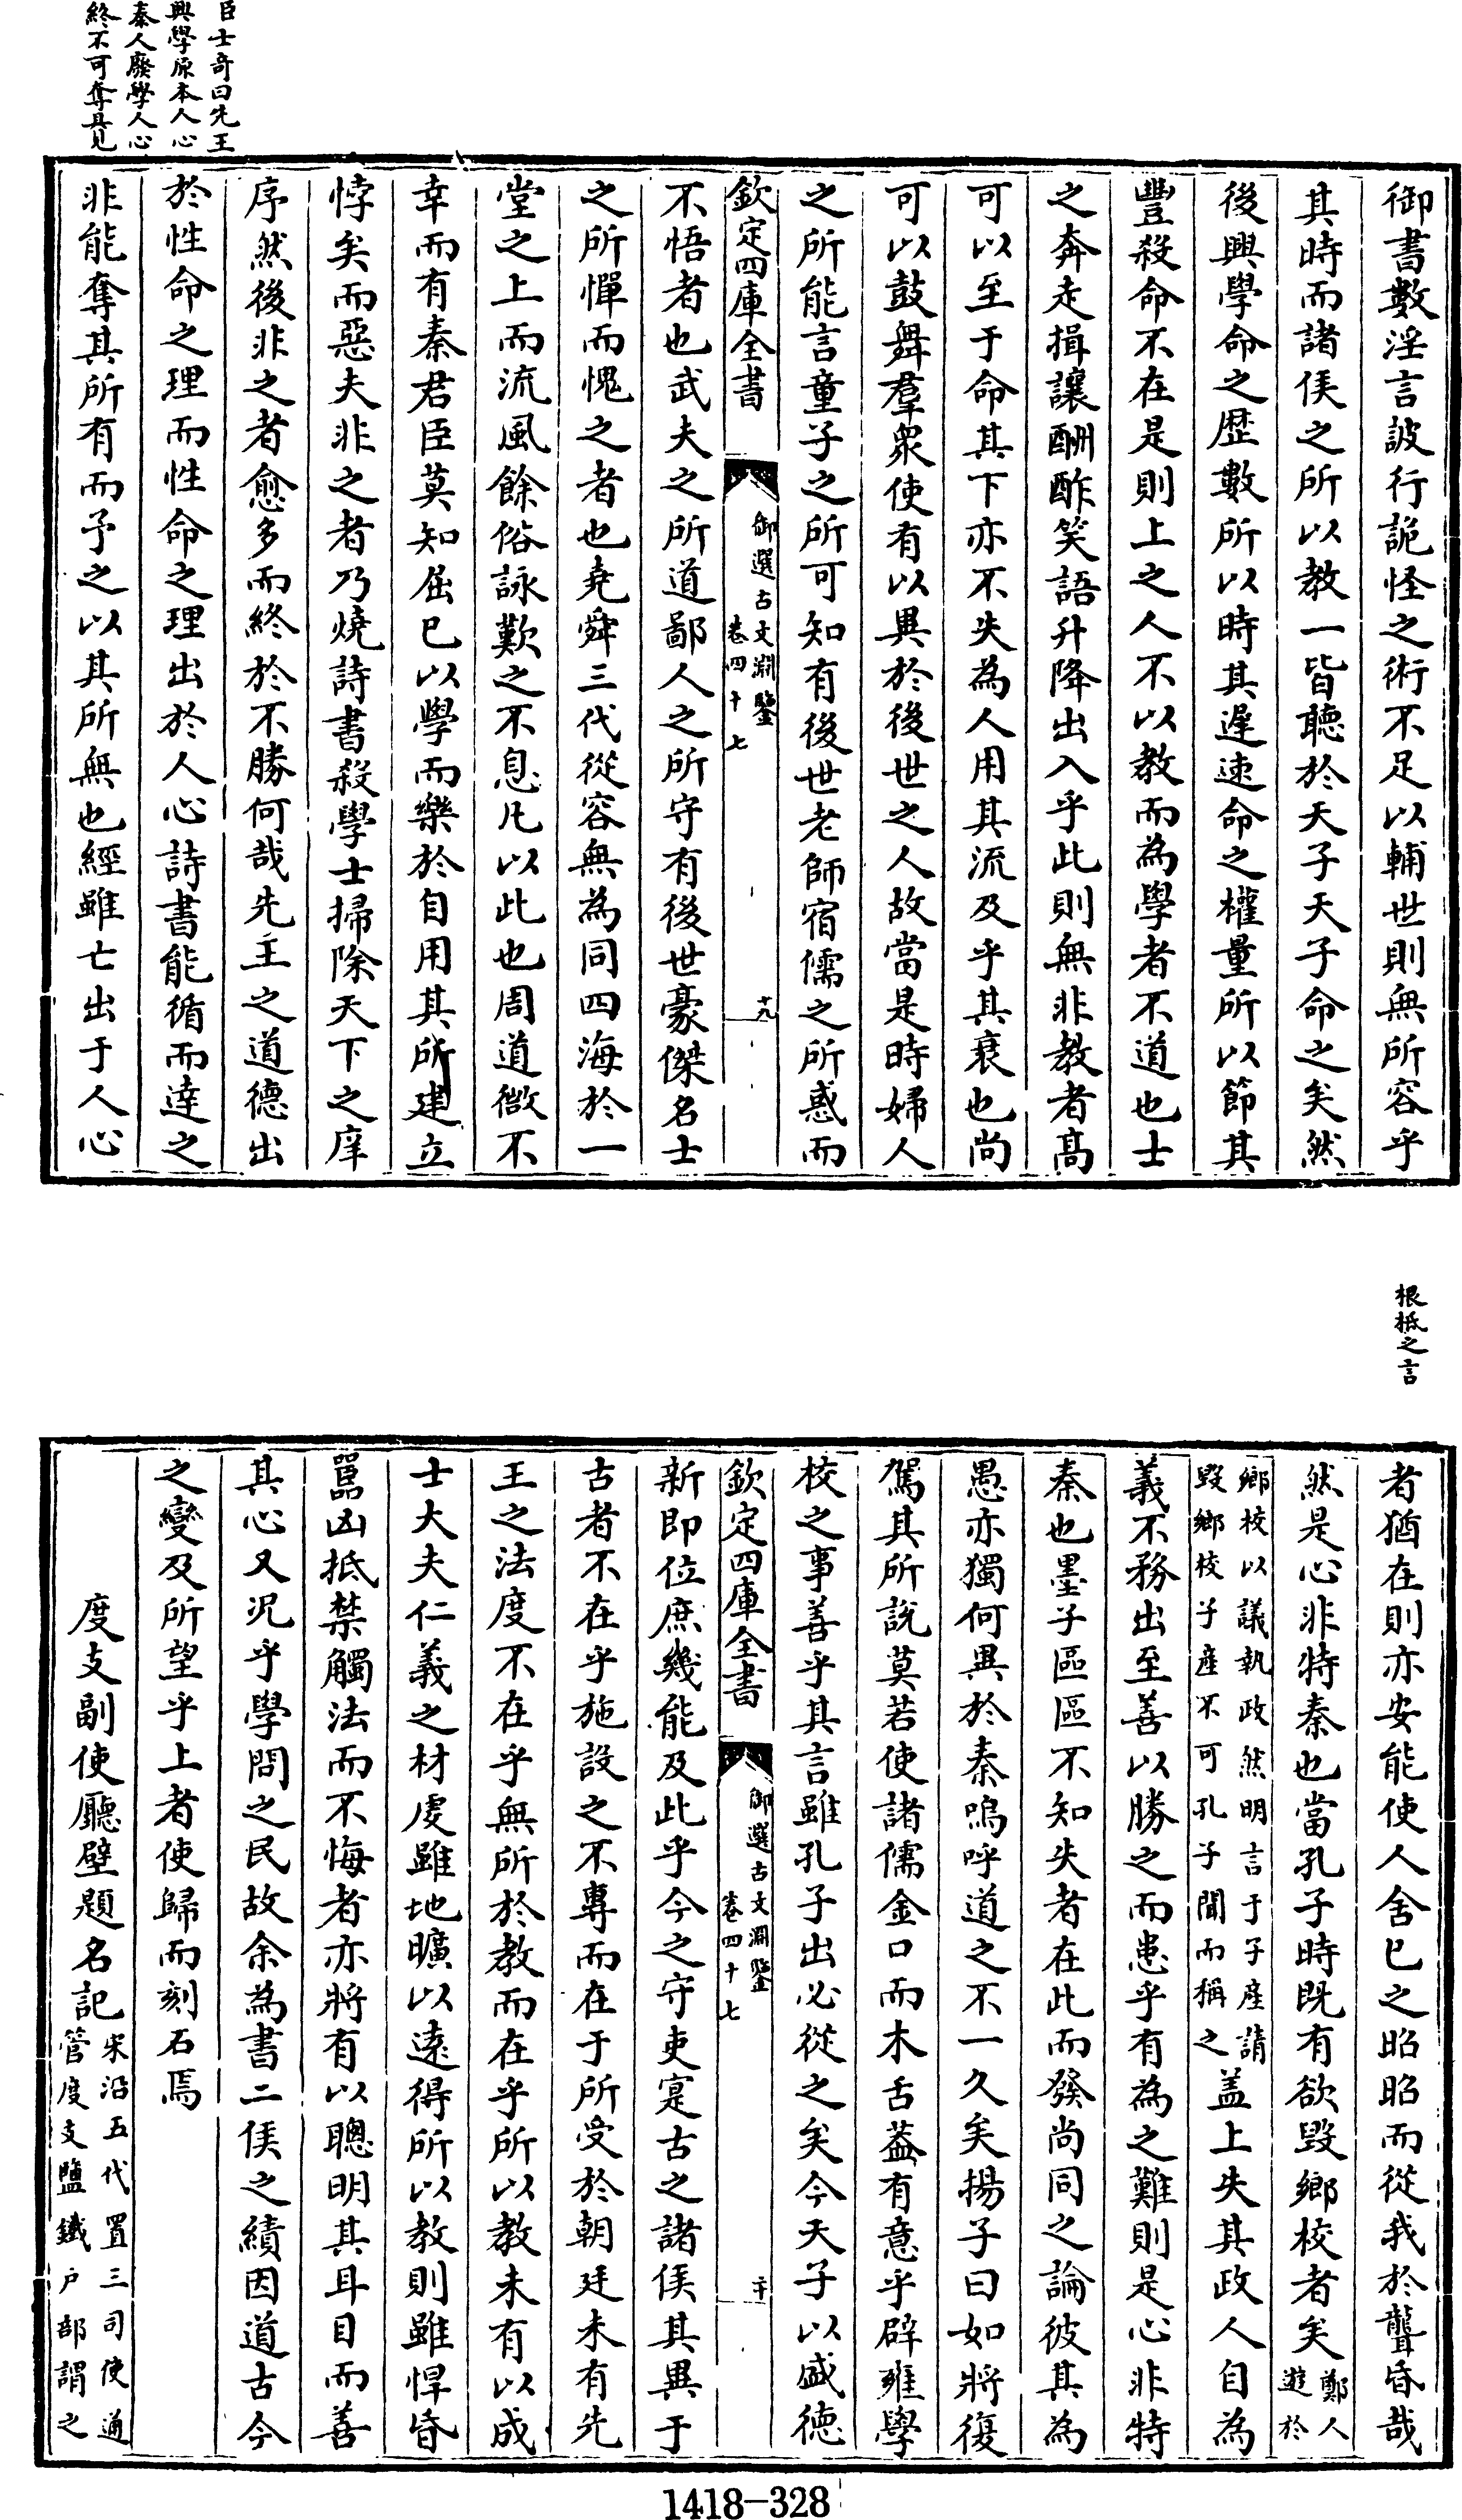 臣士奇曰先王
興學原本人心
秦人廢學人心
終不可奪具見
御書數淫言詖行詭怪之術不足以輔世則無所容乎
其時而諸侯之所以教一皆聽於天子天子命之矣然
後興學命之歴數所以時其遲速命之權量所以節其
豐殺命不在是則上之人不以教而為學者不道也士
之奔走揖讓酬酢笑語升降出入乎此則無非教者髙
可以至于命其下亦不失為人用其流及乎其衰也尚
可以鼓舞羣衆使有以異於後世之人故當是時婦人
之所能言童子之所可知有後世老師宿儒之所惑而
欽定四庫全書
御選古文淵鑒
卷四十七
十九
不悟者也武夫之所道鄙人之所守有後世豪傑名士
之所憚而愧之者也堯舜三代從容無為同四海於一
堂之上而流風餘俗詠歎之不息凡以此也周道微不
幸而有秦君臣莫知屈已以學而樂於自用其所建立
悖矣而惡夫非之者乃燒詩書殺學士掃除天下之庠
序然後非之者愈多而終於不勝何哉先王之道德出
於性命之理而性命之理出於人心詩書能循而達之
非能奪其所有而予之以其所無也經雖亡出于人心
根柢之言
者猶在則亦安能使人舍已之昭昭而從我於聾昏哉
然是心非特秦也當孔子時既有欲毀鄉校者矣鄭人
遊於
鄉校以議執政然明言于子產請
毀鄉校子產不可孔子聞而稱之
盖上失其政人自為
義不務出至善以勝之而患乎有為之難則是心非特
秦也墨子區區不知失者在此而發尚同之論彼其為
愚亦獨何異於秦嗚呼道之不一久矣揚子曰如將復
駕其所說莫若使諸儒金口而木舌葢有意乎辟雍學
校之事善乎其言雖孔子出必從之矣今天子以盛德
欽定四庫全書
御選古文淵鑒
卷四十七
二十
新即位庶幾能及此乎今之守吏寔古之諸侯其異于
古者不在乎施設之不專而在于所受於朝廷未有先
王之法度不在乎無所於教而在乎所以教未有以成
士大夫仁義之材䖏雖地曠以逺得所以教則雖悍昏
嚚凶抵禁觸法而不悔者亦將有以聰明其耳目而善
其心又況乎學問之民故余為書二侯之績因道古今
之變及所望乎上者使歸而刻石焉
度支副使廳壁題名記宋沿五代置三司使通
管度支鹽鐵户部謂之
1418-328